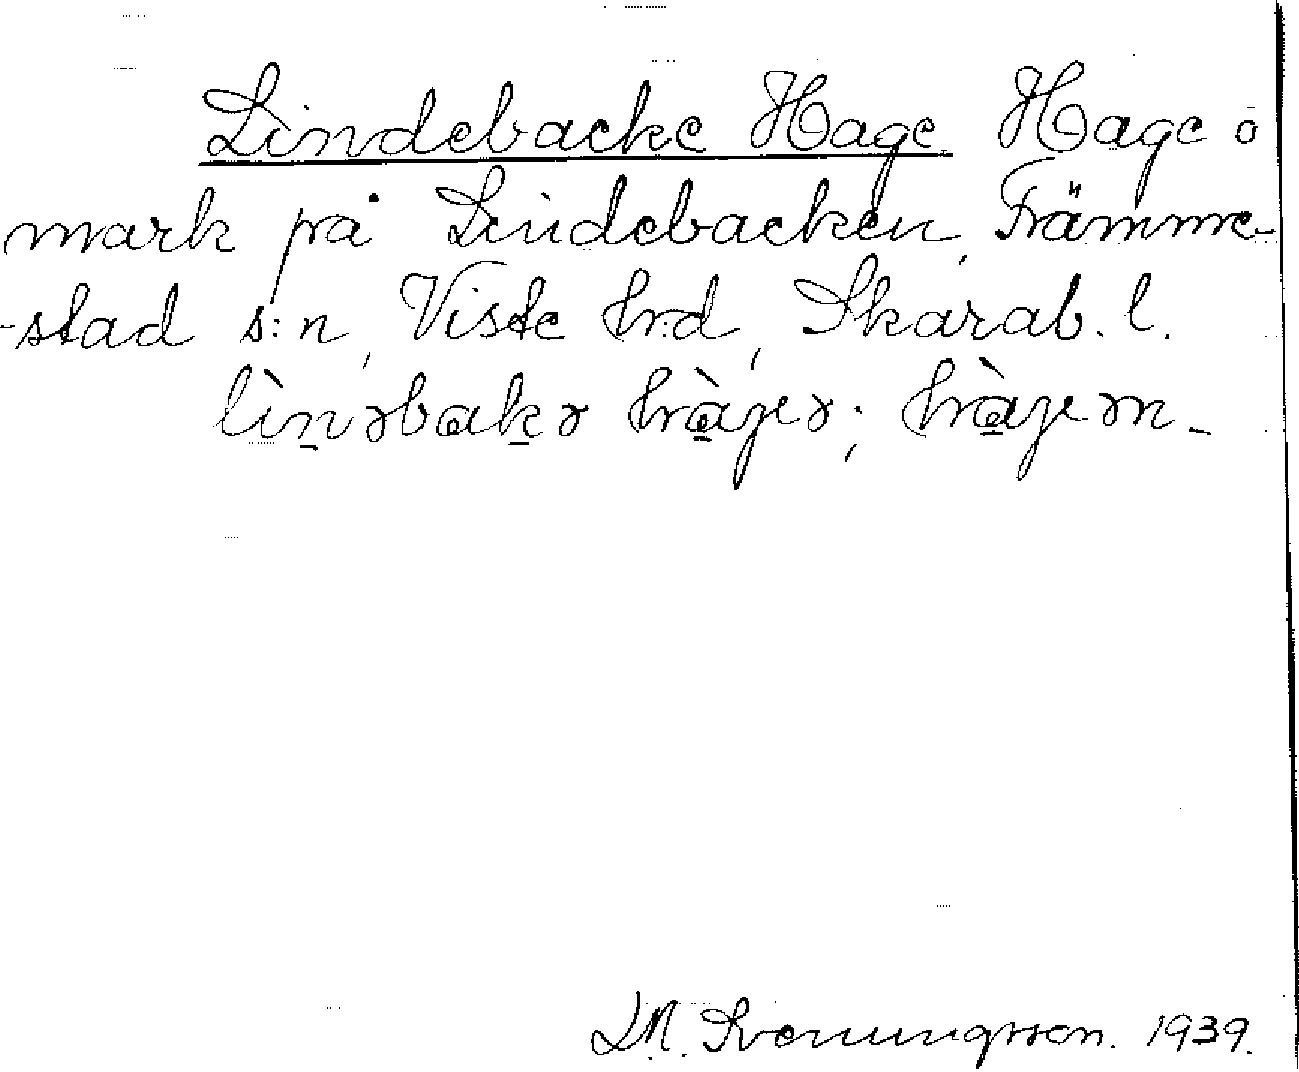 Lindebacke Hage Hage o
mark på Lindebacken, Främme-
-stad s:n, Viste hrd, Skarab. l.
lìnəbakə hàɡeə; hàɡeəm -
J.M. Svenungsson. 1939.